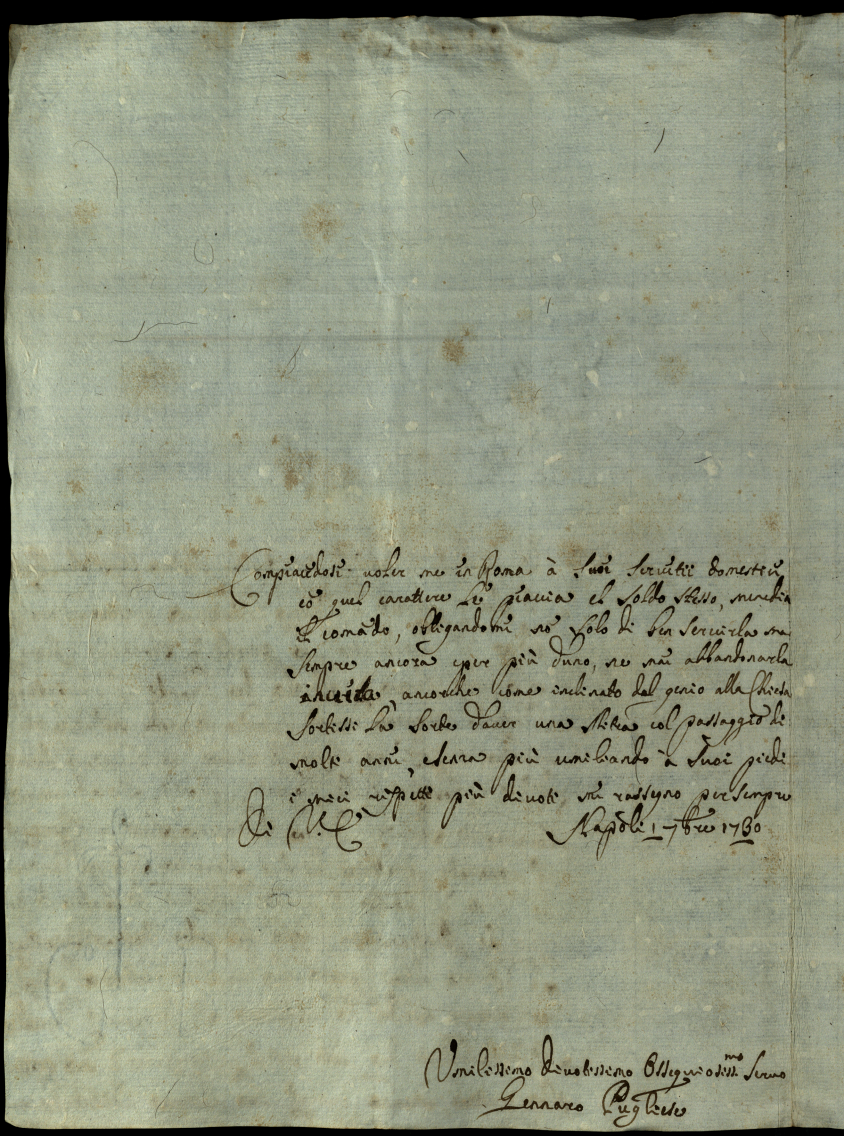 Compiacẽdosi voler me in Roma à suoi servitii domestici
cõ quel carattere Le piaccia el soldo stesso, me ne dia
il comãdo, obligandomi nõ solo di ben servirla ma
sempre ancora e per più d'uno, ne mai abbandonarla
in vita, ancorche come inclinato dal genio alla Chiesa
sortissi la sorte d'aver una Mitra col passaggio di
molti anni, e senza più umiliando à suoi piedi
i miei rispetti più divoti mi rassegno per sempre
Di V. E. Napoli 1 7bre 1730
Umilissimo Divotissimo Ossequiosiss.mo Servo
Gennaro Pugliese